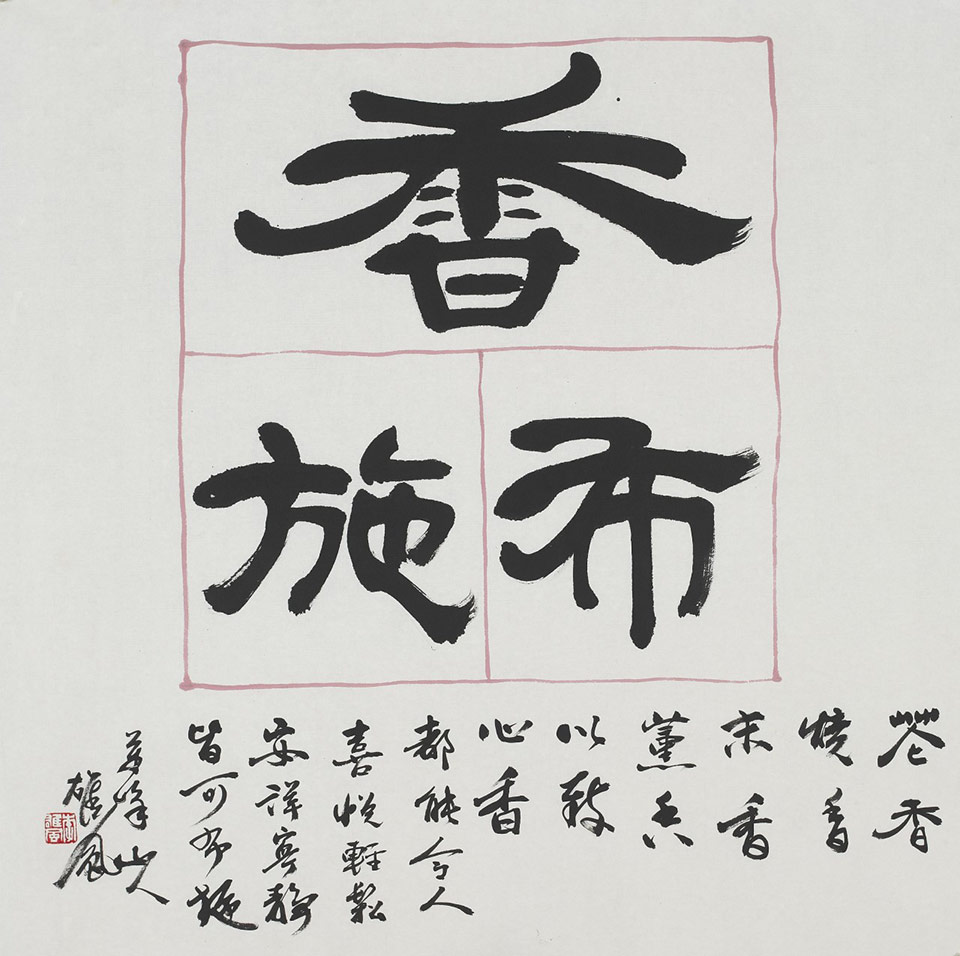 香
布施
花香
燒香
末香
薰香
以致
心香
都能令人
喜悅輕鬆
安詳寧靜
皆可布施
峰山人
雄風